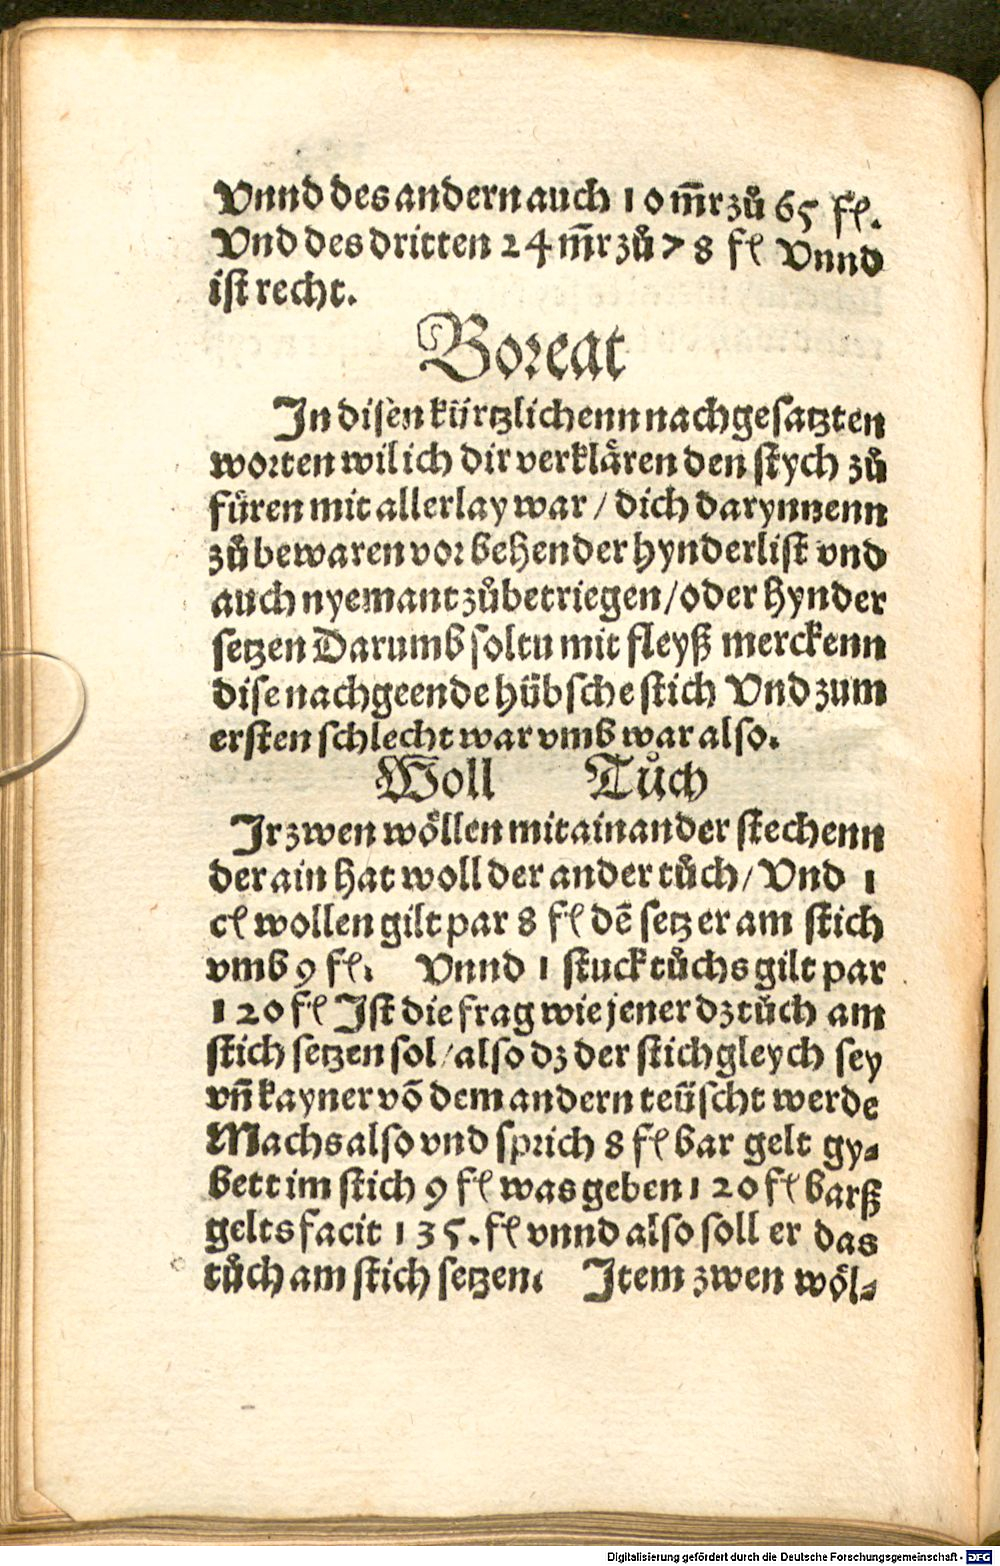 Vnnd des andern auch 10 m̄r zů 65 fl.
Vnd des dritten 24 m̄r zů 78 fl Vnnd
ist recht.
Boreat
In disen kürtzlichenn nachgesatzten
worten wil ich dir verklären den stych zů
füren mit allerlay war / dich darynnenn
zů bewaren vor behender hynderlist vnd
auch nyemant zů betriegen / oder hynder
setzen Darumb soltu mit fleyß merckenn
dise nachgeende hübsche stich Vnd zum
ersten schlecht war vmb war also.
Woll Tůch
Ir zwen wöllen mit ainander stechenn
der ain hat woll der ander tůch / Vnd 1
cl wollen gilt par 8 fl dē setz er am stich
vmb 9 fl. Vnnd 1 stuck tůchs gilt par
120 fl Ist die frag wie jener dz tůch am
stich setzen sol / also dz der stich gleych sey
vn̄ kayner vō dem andern teüscht werde
Machs also vnd sprich 8 fl bar gelt gy⸗
bett im stich 9 fl was geben 120 fl barß
gelts facit 135. fl vnnd also soll er das
tůch am stich setzen. Item zwen wöl⸗
Digitalisierung gefördert durch die Deutsche Forschungsgemeinschaft - DFG